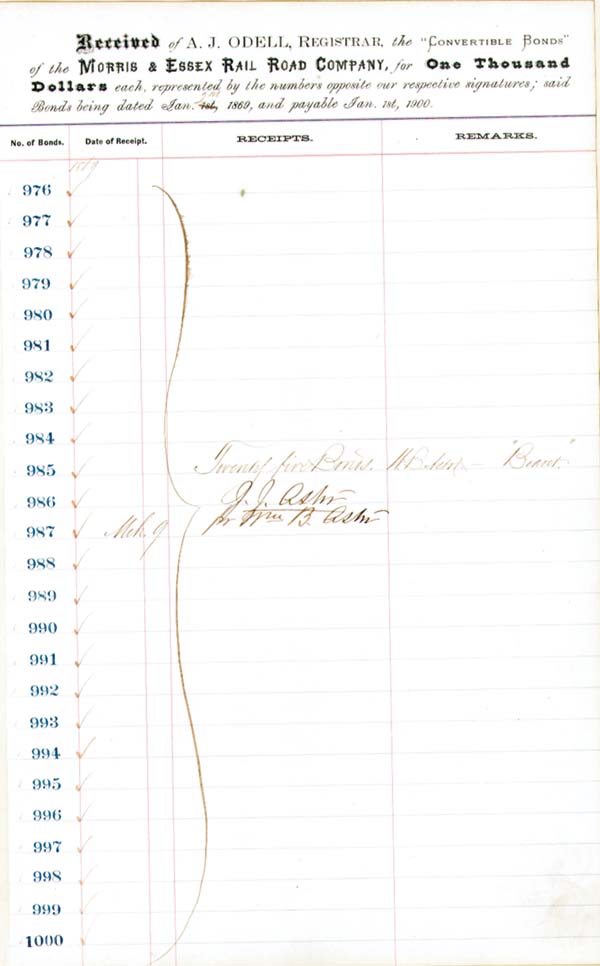 Received of A. J. ODELL, REGISTRAR, the "CONVERTIBLE BONDS"
of the MORRIS & ESSEX RAIL ROAD COMPANY, for One Thousand
Dollars each, represented by the numbers opposite our respective signatures; said
Bonds being dated Jan. 1st, 1869, and payable Jan. 1st, 1900.
No. of Bonds. Date of Receipt. RECEIPTS. REMARKS.
1869
976
977
978
979
980
981
982
983
984
985 Twenty five Bonds. W. B. Astor — "Bearer"
986 J. J. Astor
987 Mch. 9 for Wm B. Astor
988
989
990
991
992
993
994
995
996
997
998
999
1000